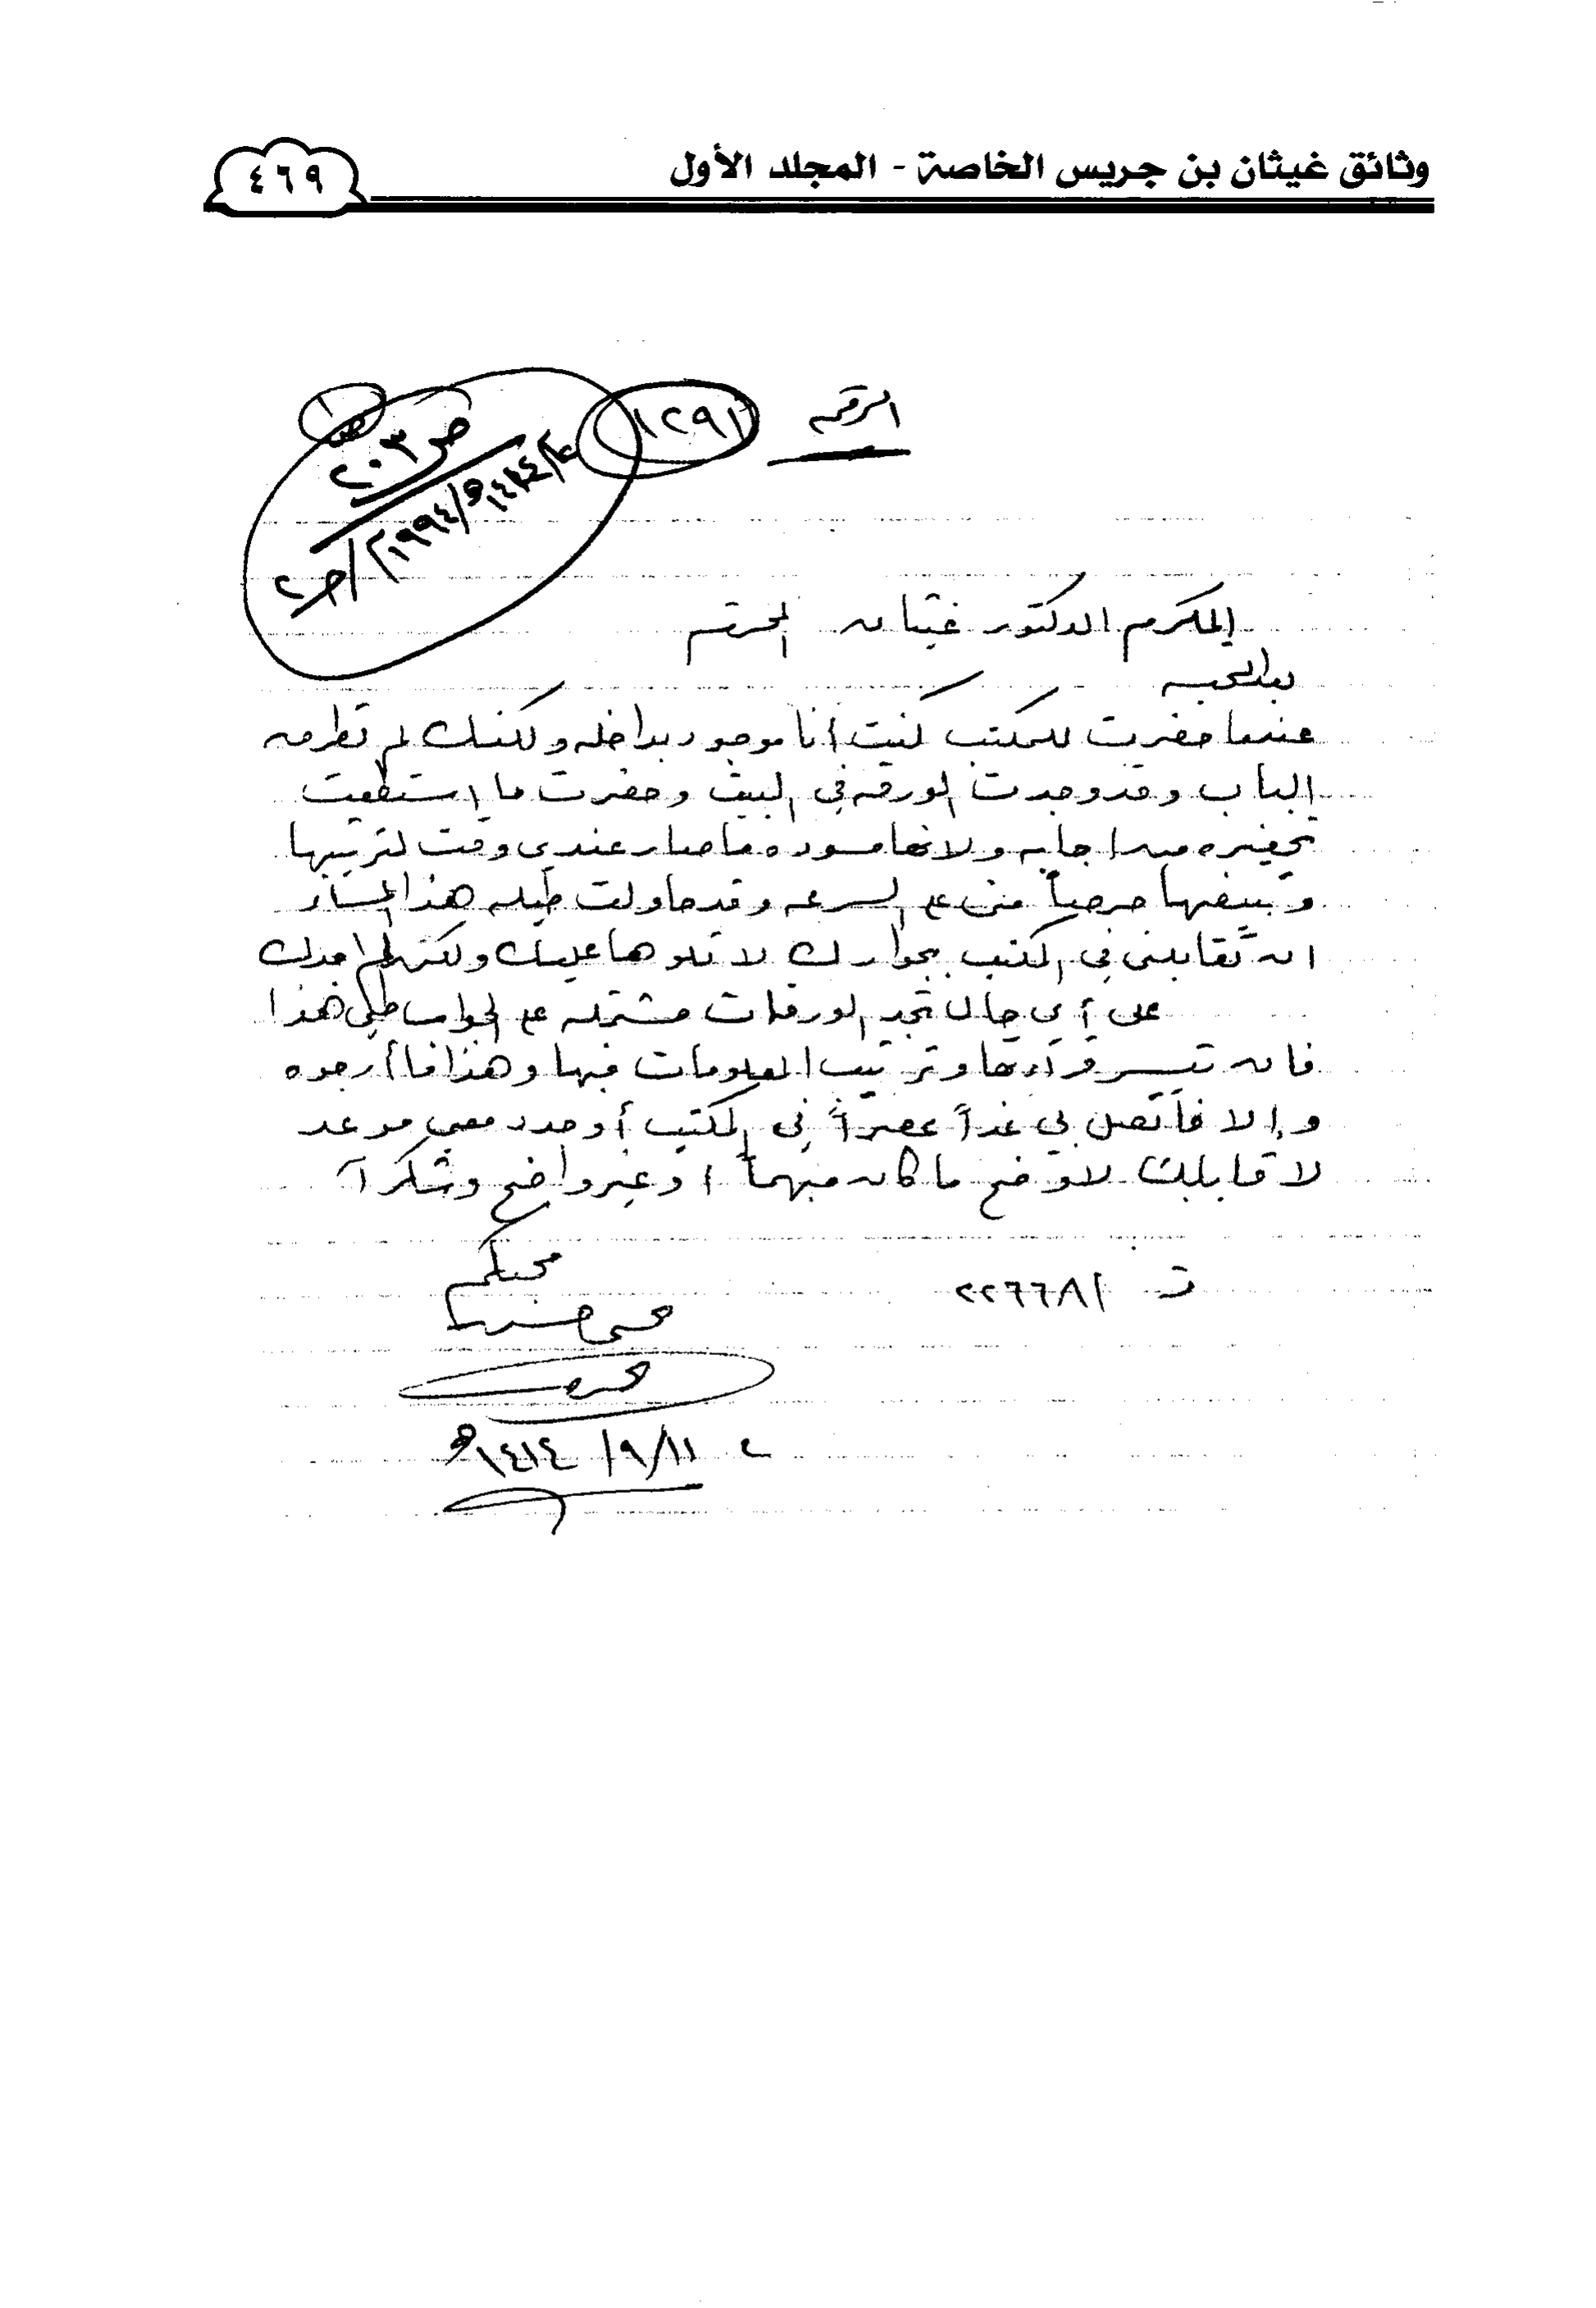 وثائق غيثان بن جريس الخاصة - المجلد الأول
٤٦٩
الرقم
١٢٩١
ص ٢٠٣
١٤١٤هـ/١٩٩٤م/ج٢
المكرم الدكتور غيثان المحترم
بعد التحية
عندما حضرت للمكتب كنت أنا موجود بداخله ولكنك لم تطرق
الباب وقد وجدت الورقه في البيت وحضرت ما استطعت
تحضيره من اجابه ولانها مسوده ما صار عندي وقت لترتيبها
وتبيضها حرصاً مني على السرعه وقد حاولت طيله هذا المساء
ان تقابلني في المكتب بجوارك لاتلوها عليك ولكن لم اجدك
على أي حال تجد الورقات مشتمله على الجواب طي هذا
فان تيسر قرأتها وترتيب المعلومات فيها وهذا ما أرجوه
وإلا فأتصل بي غداً عصراً في المكتب أو حدد معي موعد
لاقابلك لاوضح ما كان مبهماً او غير واضح وشكراً
محبكم
ت / ٢٢٦٦٨
١١/٩/١٤١٤هـ